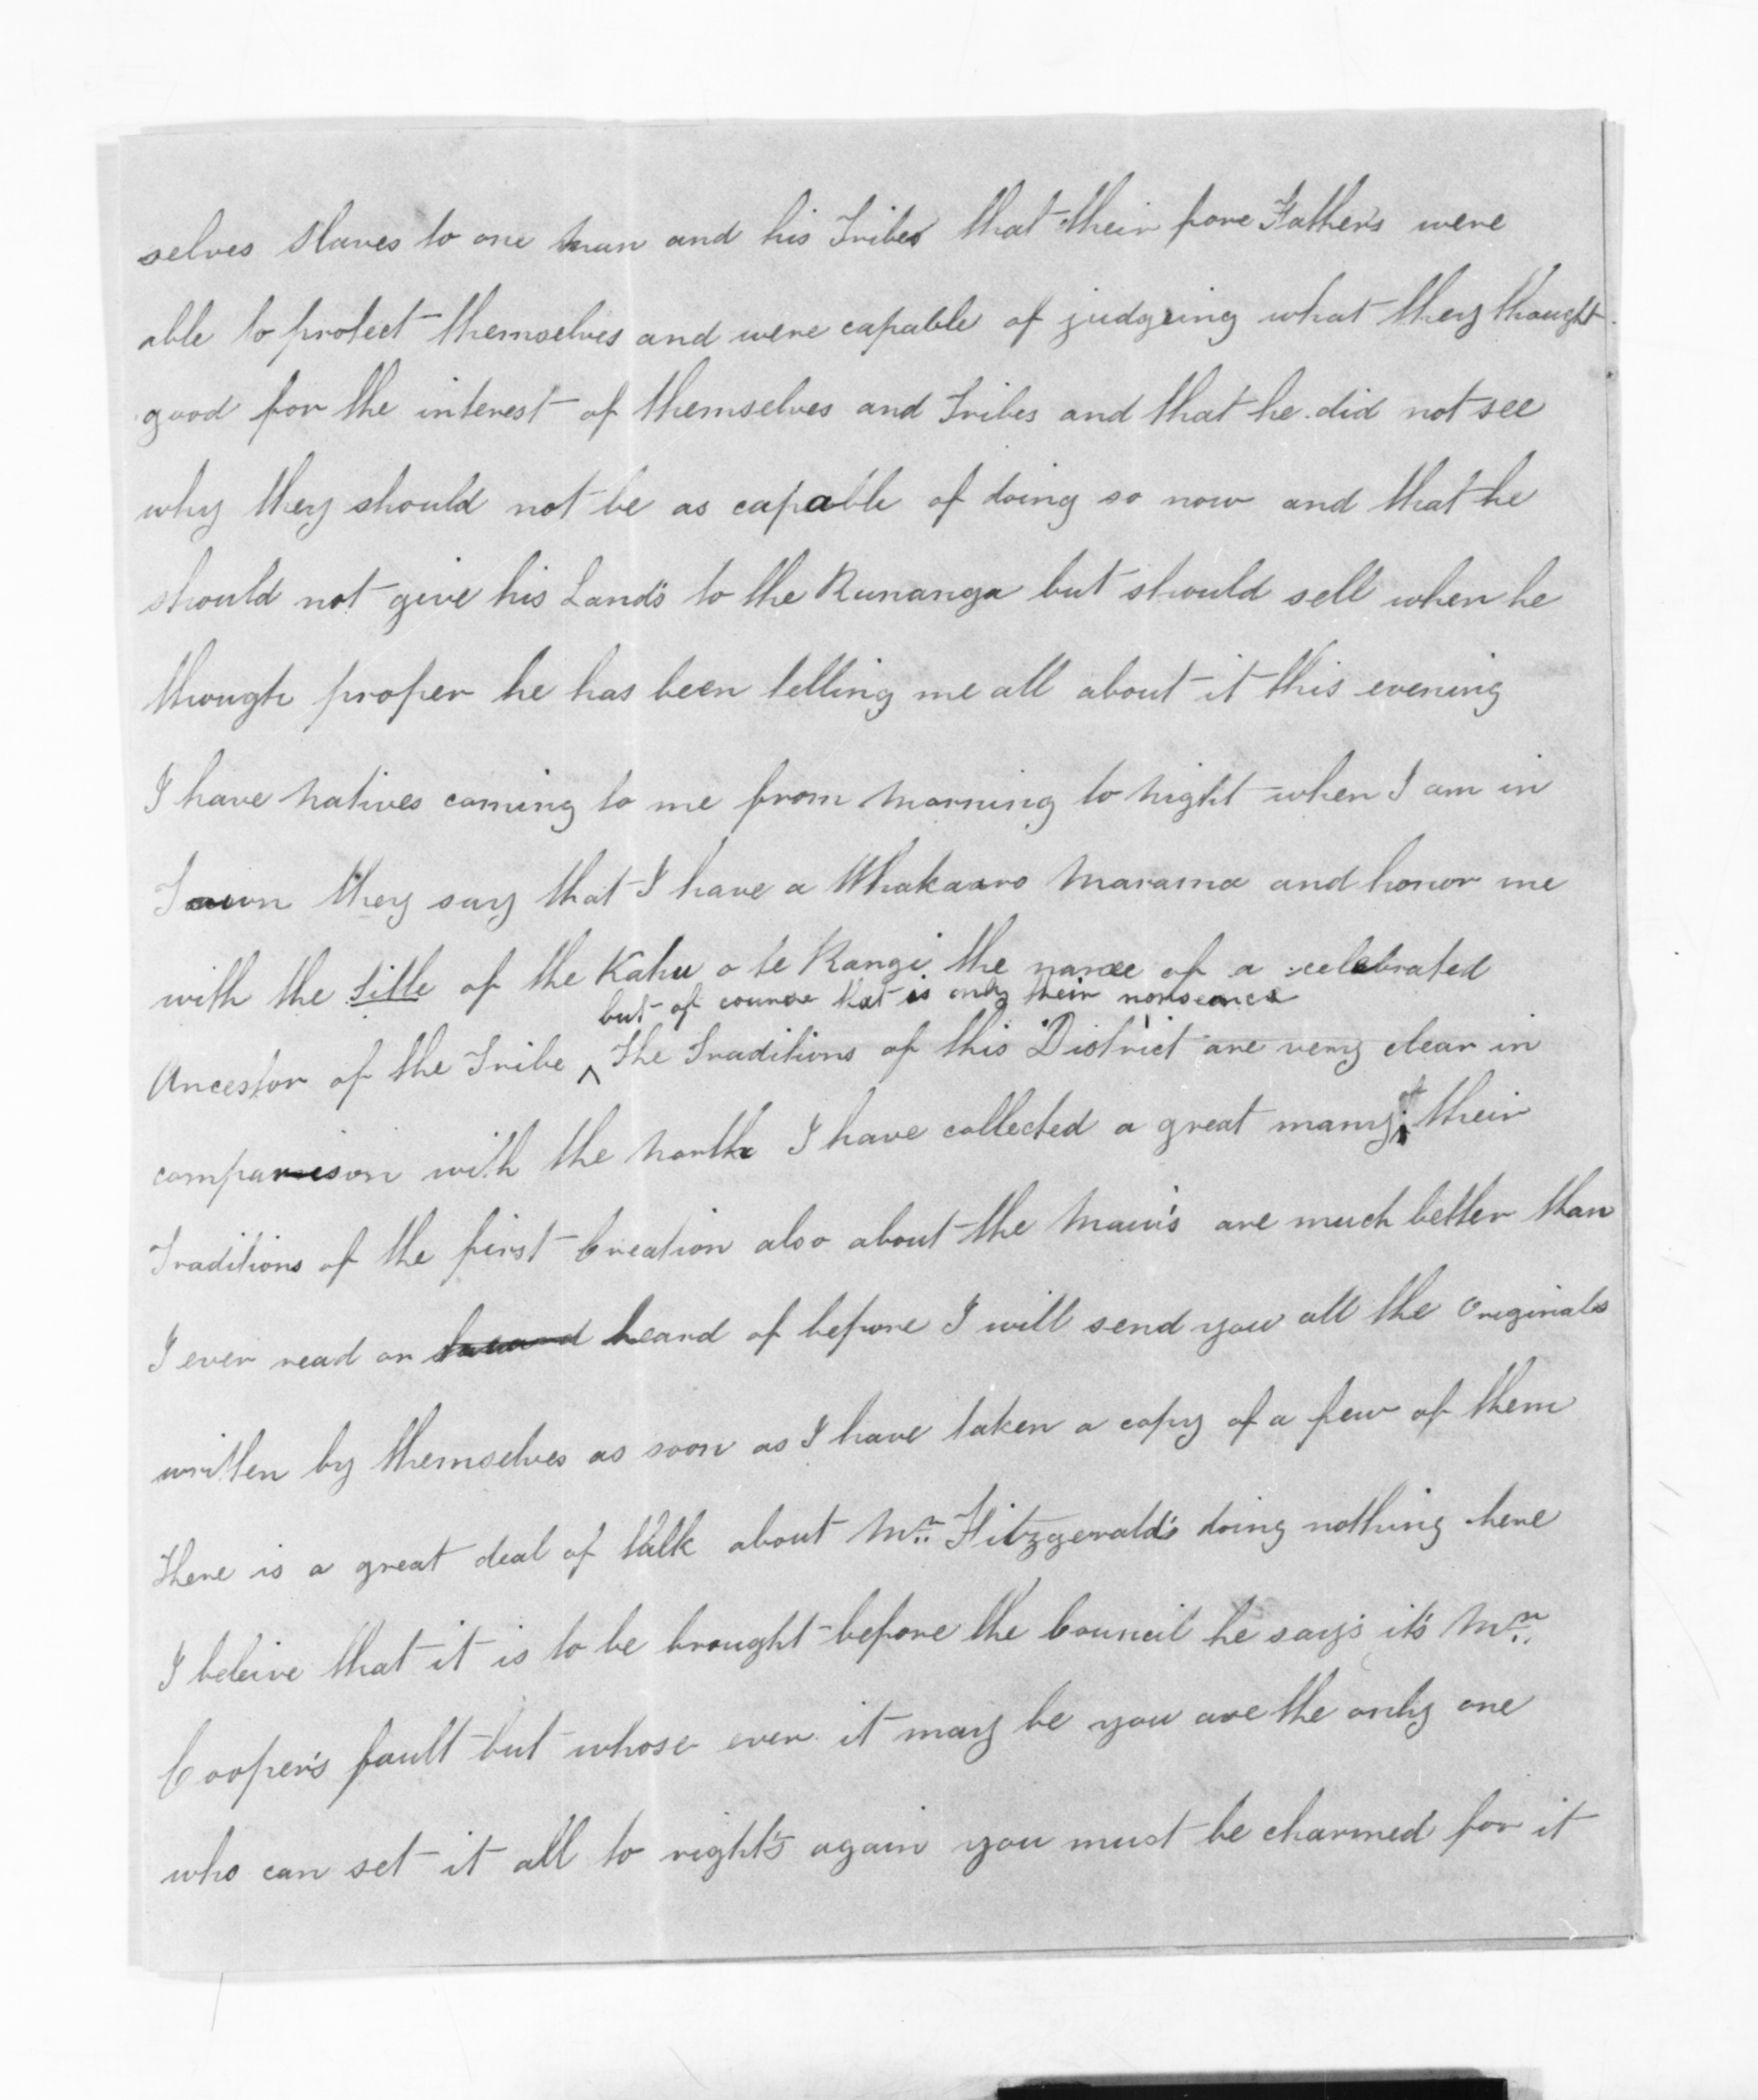 selves Slaves to one man and his Tribes that their fore Fathers were
able to protect themselves and were capable of judgeing what they thought
good for the interest of themselves and Tribes and that he did not see
why they should not be as capable of doing so now and that he
should not give his Lands to the Runanga but should sell when he
though proper he has been telling me all about it this evening
I have natives coming to me from morning to night when I am in
Town they say that I have a Whakaaro Marama and honor me
with the title of the Kahu o te Rangi the name of a celebrated
but of course that is only their nonsence
Ancestor of the Tribe ^ The Traditions of this District are very clear in
comparrison with the north I have collected a great many of their
Traditions of the first Creation also about the Maui's are much better than
I ever read or heard of before I will send you all the Originals
written by themselves as soon as I have taken a copy of a few of them
There is a great deal of talk about Mr. Fitzgerald's doing nothing here
I beleive that it is to be brought before the Council he say's it's Mr.
Cooper's fault but whose ever it may be you are the only one
who can set it all to right's again you must be charmed for it